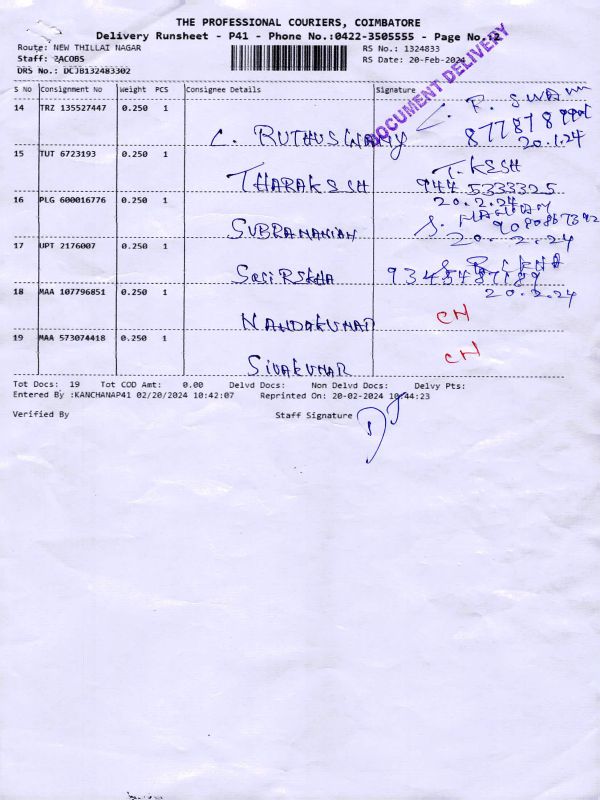 THE PROFESSIONAL COURIERS, COIMBATORE
Delivery Runsheet - P41 - Phone No.:0422-3505555 - Page No.:2
Route: NEW THILLAI NAGAR
RS No.: 1324833
Staff: JACOBS
RS Date: 20-Feb-2024
DRS No.: DCJB132483302
DOCUMENT DELIVERY
S No Consignment No Weight PCS Consignee Details Signature
14 TRZ 135527447 0.250 1
C. RUTHUSWAMY
20.1.24
15 TUT 6723193 0.250 1
THARAKSSH T.KSSH
944 5333325
20.2.24
16 PLG 600016776 0.250 1
SUBRAMANIAN
20.2.24
17 UPT 2176007 0.250 1
SasiRekha
20.2.24
18 MAA 107796851 0.250 1
NANDAKUMAR CN
19 MAA 573074418 0.250 1
SIVAKUMAR CN
Tot Docs: 19 Tot COD Amt: 0.00 Delvd Docs: Non Delvd Docs: Delvy Pts:
Entered By :KANCHANAP41 02/20/2024 10:42:07 Reprinted On: 20-02-2024 10:44:23
Verified By Staff Signature